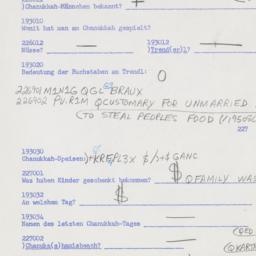 )Chanukka-Männchen bekannt?
193010
Womit hat man an Chanukkah gespielt?
226012 193012
Nüsse? )Trend(er)l?
193020
Bedeutung der Buchstaben am Trendl: O
226901 M1N1G QGL BRAUX
226902 PV.R1M QCUSTOMARY FOR UNMARRIED
(TO STEAL PEOPLES FOOD
227
193030
Chanukkah-Speisen: $/n+$ GANG
227001
Was haben Kinder geschenkt bekommen? $ QFAMILY WAS
193032
An welchem Tag? $
193034
Namen des letzten Chanukkah-Tages
227002
)Chanuka(s)hamisbeach?